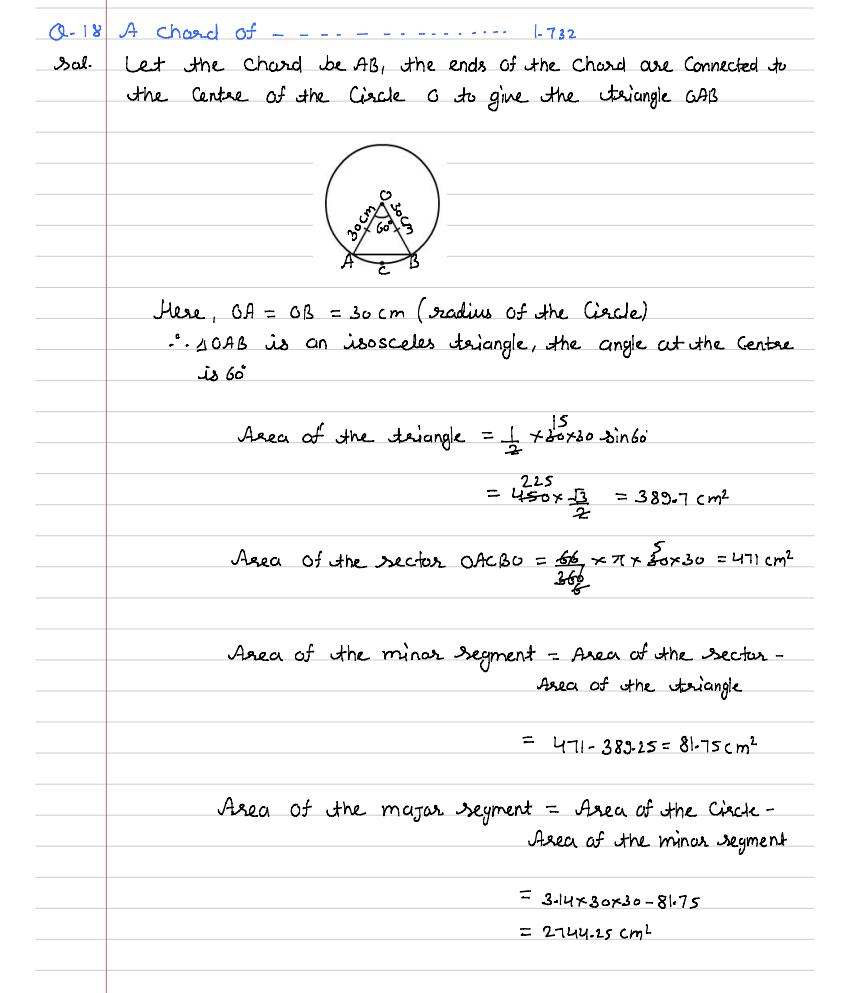 Q-18 A chord of - - - - - - - - - - - - - - - - - 1.732
sol. Let the chord be AB, the ends of the chord are connected to
the centre of the circle O to give the triangle OAB
O
30cm 60° 30cm
A B
C
Here, OA = OB = 30 cm (radius of the circle)
∴ △OAB is an isosceles triangle, the angle at the centre
is 60°
15
Area of the triangle = 1/2 × 30×30 sin60°
225
= 450 × √3/2 = 389.7 cm²
5
Area of the sector OACBO = 60/360 × π × 30×30 = 471 cm²
6
Area of the minor segment = Area of the sector -
Area of the triangle
= 471 - 389.25 = 81.75 cm²
Area of the major segment = Area of the circle -
Area of the minor segment
= 3.14×30×30 - 81.75
= 2744.25 cm²